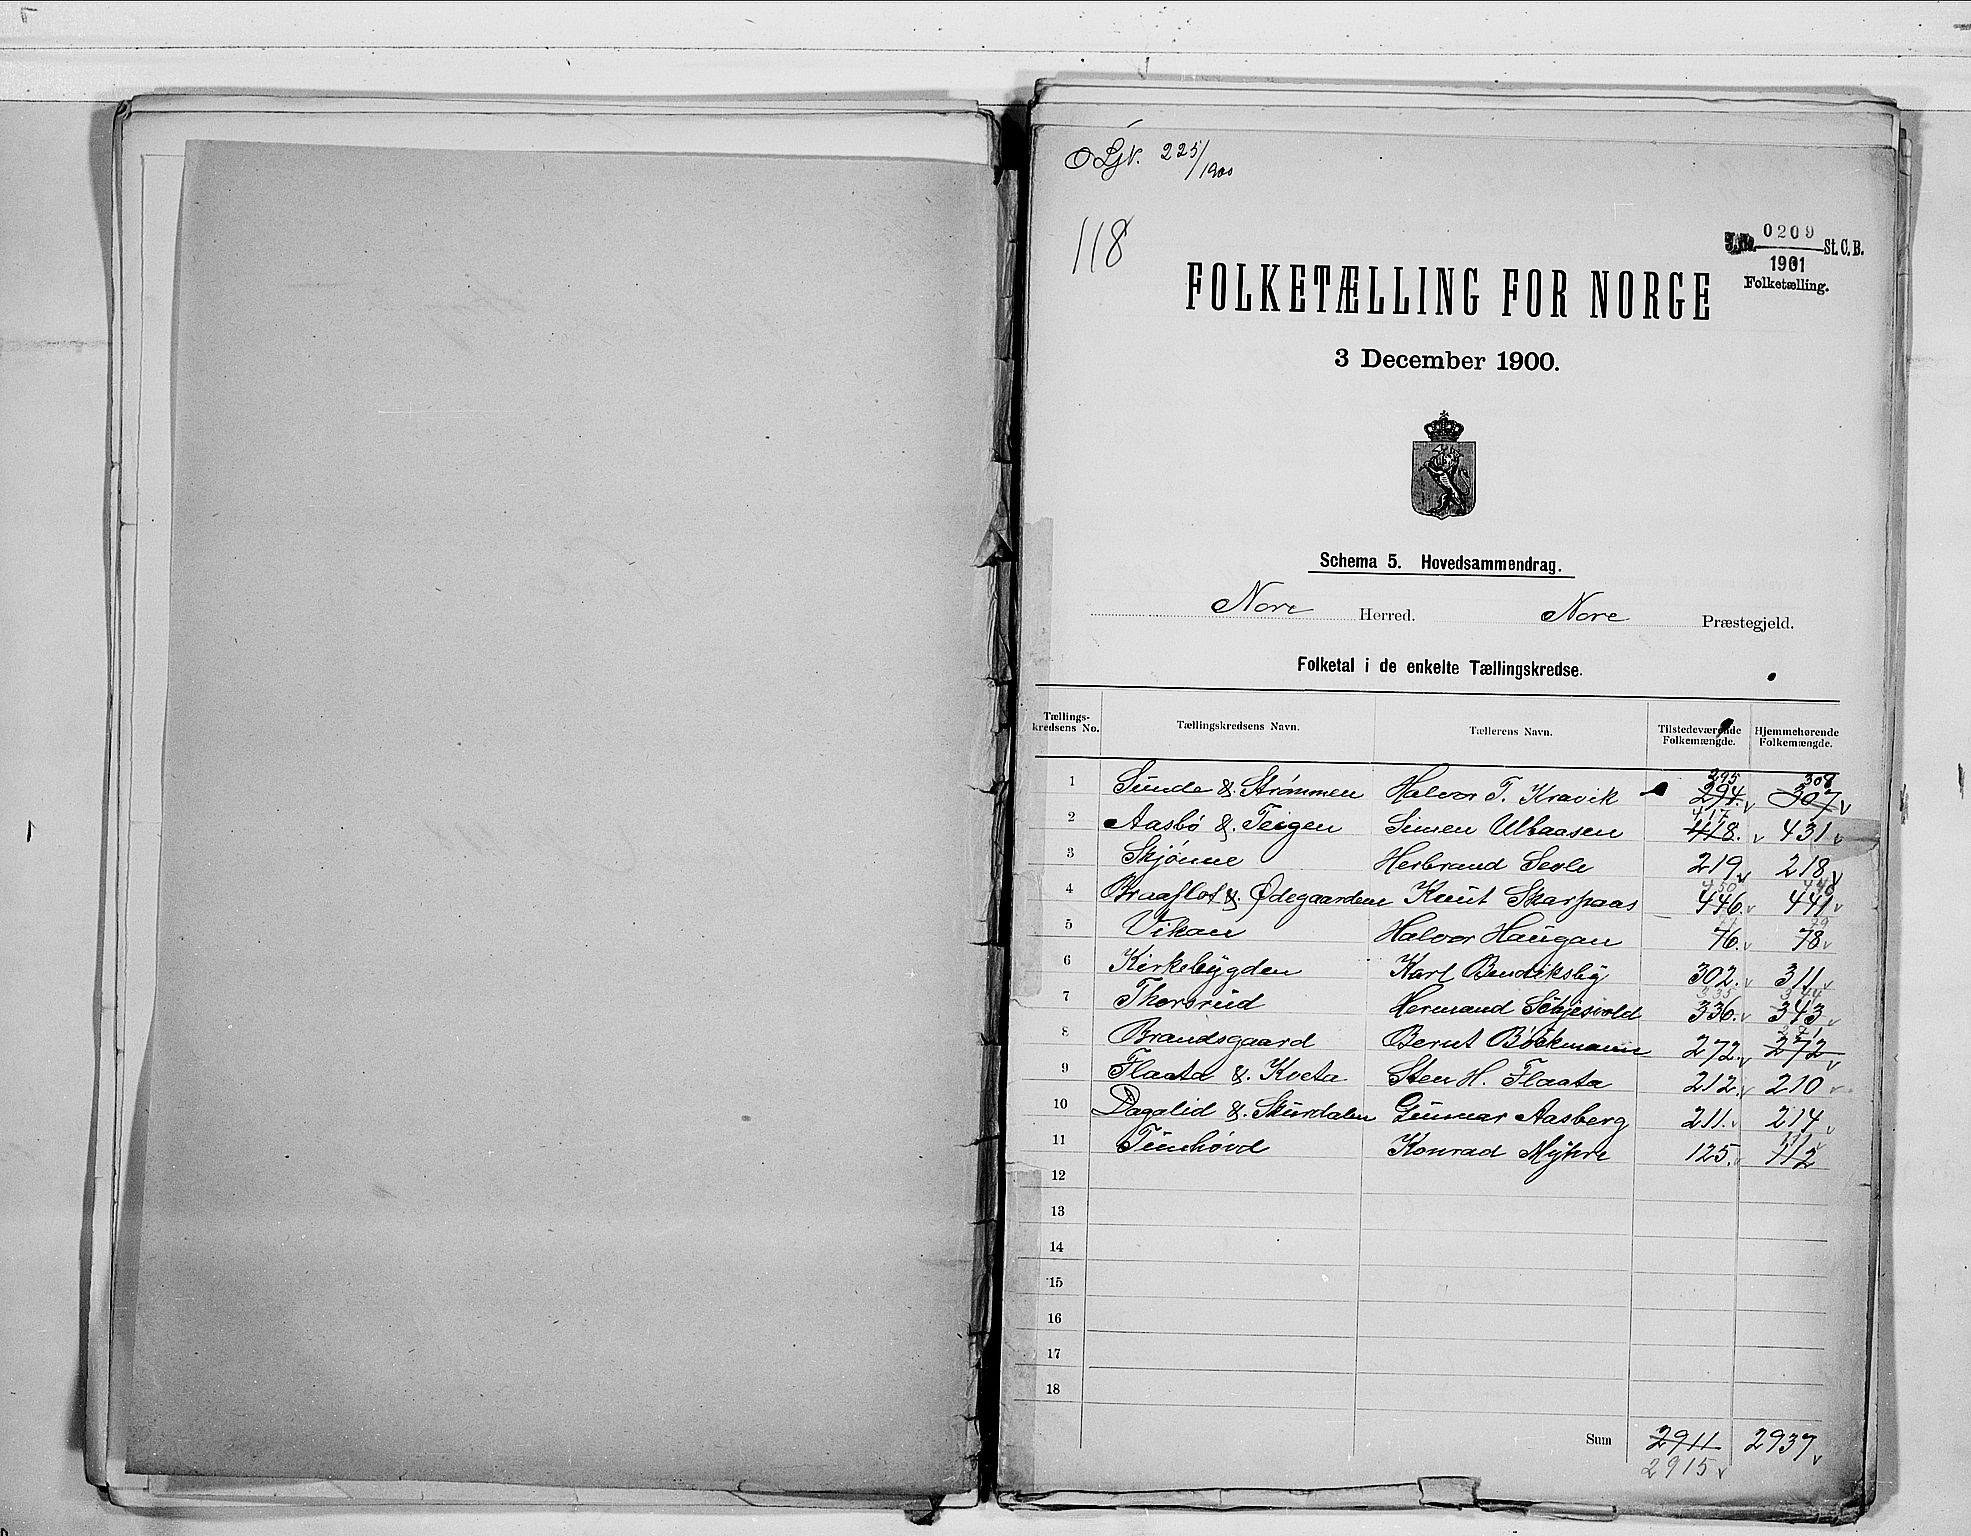 O Ljr. 225/1900
118
J.No. 0209 St. C. B.
1901
Folketælling.
FOLKETÆLLING FOR NORGE
3 December 1900.
Schema 5. Hovedsammendrag.
Nore Herred. Nore Præstegjeld.
Folketal i de enkelte Tællingskredse.
Tællings-kredsens No. Tællingskredsens Navn. Tællerens Navn. Tilstedeværende Folkemængde. Hjemmehørende Folkemængde.
295 308
1 Sunde & Strømmen Halvor T. Kravik 294 307
417
2 Aasbø & Teigen Simen Ulbaasen 418. 431
3 Skjønne Herbrand Sevle 219 218
450 440
4 Braaflot & Ødegaarden Knut Skarpaas 446. 441
5 Vikan Halvor Haugan 76. 78
6 Kirkebygden Karl Bendiksby 302. 311
335 344
7 Thorsrud Hermand Schjesvold 336. 343
271
8 Brandsgaard Bernt Bøckmann 272. 272
9 Flaata & Kveta Sten H. Flaata 212. 210
10 Dagalid & Skurdalen Gunnar Aasberg 211. 214
111
11 Tunhøvd Konrad Myhre 125. 112
12
13
14
15
16
17
18
Sum 2911 2937
2915